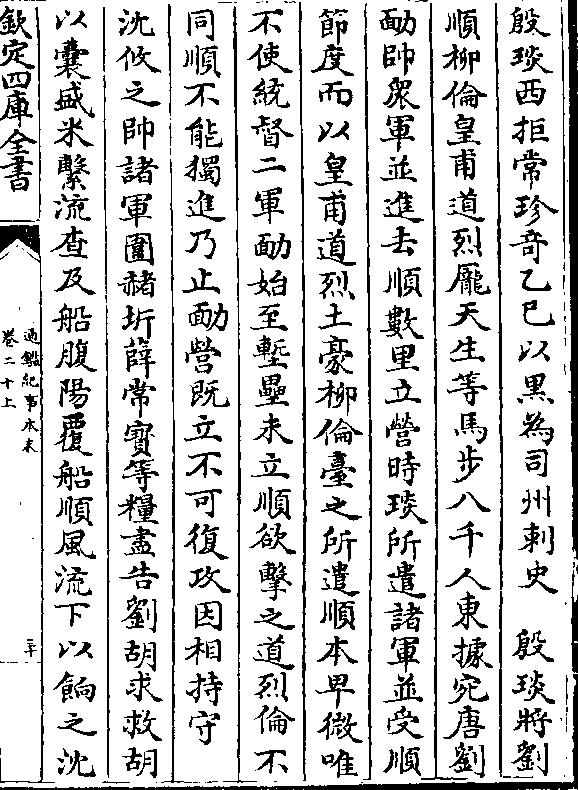 殷琰西拒常珍奇乙巳以黒為司州刺史　殷琰將劉
順柳倫皇甫道烈龐天生等馬步八千人東據宛唐劉
勔帥衆軍並進去順數里立營時琰所遣諸軍並受順
節度而以皇甫道烈土豪柳倫臺之所遣順本卑微唯
不使統督二軍勔始至塹壘未立順欲擊之道烈倫不
同順不能獨進乃止勔營既立不可復攻因相持守
沈攸之帥諸軍圍赭圻薛常寳等糧盡告劉胡求救胡
以囊盛米繫流查及船腹陽覆船順風流下以餉之沈
欽定四庫全書
通鑑紀事本末
卷二十上
二十